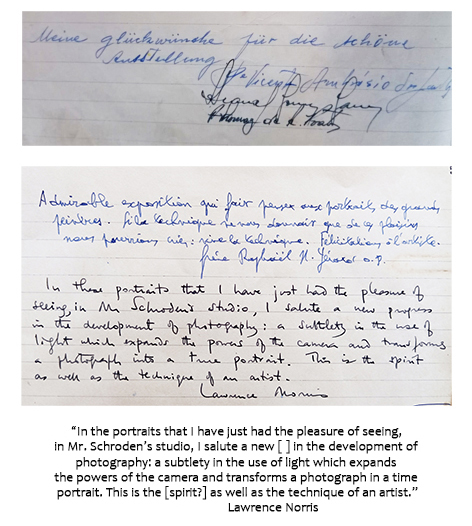 Meine glückwünsche für die schöne
Ausstellung
Vicente
Admirable exposition qui fait penser aux portraits des grands
peintres. Si la technique ne nous donnait que de ces plaisirs
nous pourrions crier: vive la technique. Félicitations à l'artiste.
frère Raphaël o.p.
In these portraits that I have just had the pleasure of
seeing, in Mr Schroden's studio, I salute a new progress
in the development of photography: a subtlety in the use of
light which expands the powers of the camera and transforms
a photograph into a true portrait. This is the spirit
as well as the technique of an artist.
Lawrence Norris
“In the portraits that I have just had the pleasure of seeing,
in Mr. Schroden's studio, I salute a new [ ] in the development of
photography: a subtlety in the use of light which expands
the powers of the camera and transforms a photograph in a time
portrait. This is the [spirit?] as well as the technique of an artist.”
Lawrence Norris